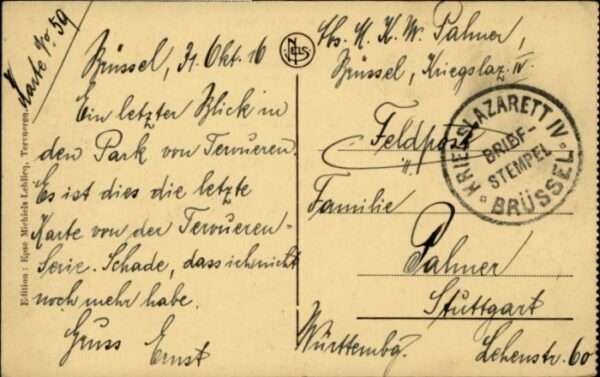 Karte No. 59
Brüssel, 31. Okt. 16
Ein letzter Blick in
den Park von Tervueren.
Es ist dies die letzte
Karte von der Tervueren-
Serie. Schade, dass ich nicht
noch mehr habe.
Gruss Ernst
Edition : Epse Michiels Leblicq, Tervueren
NELS
Abs. K. W. Palmer,
Brüssel, Kriegslaz. IV.
Feldpost
KRIEGSLAZARETT IV
BRIEF-
STEMPEL
BRÜSSEL
Familie
Palmer
Stuttgart
Württembg. Lehenstr. 60